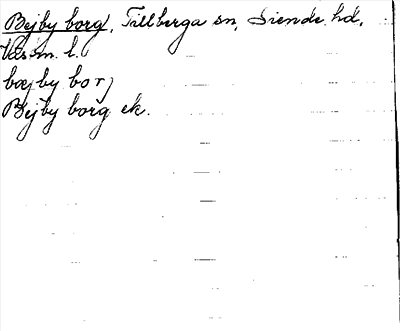 Bejby borg, Tillberga sn, Siende hd,
Västm. l.
bæjby borj
Bejby borg ek.